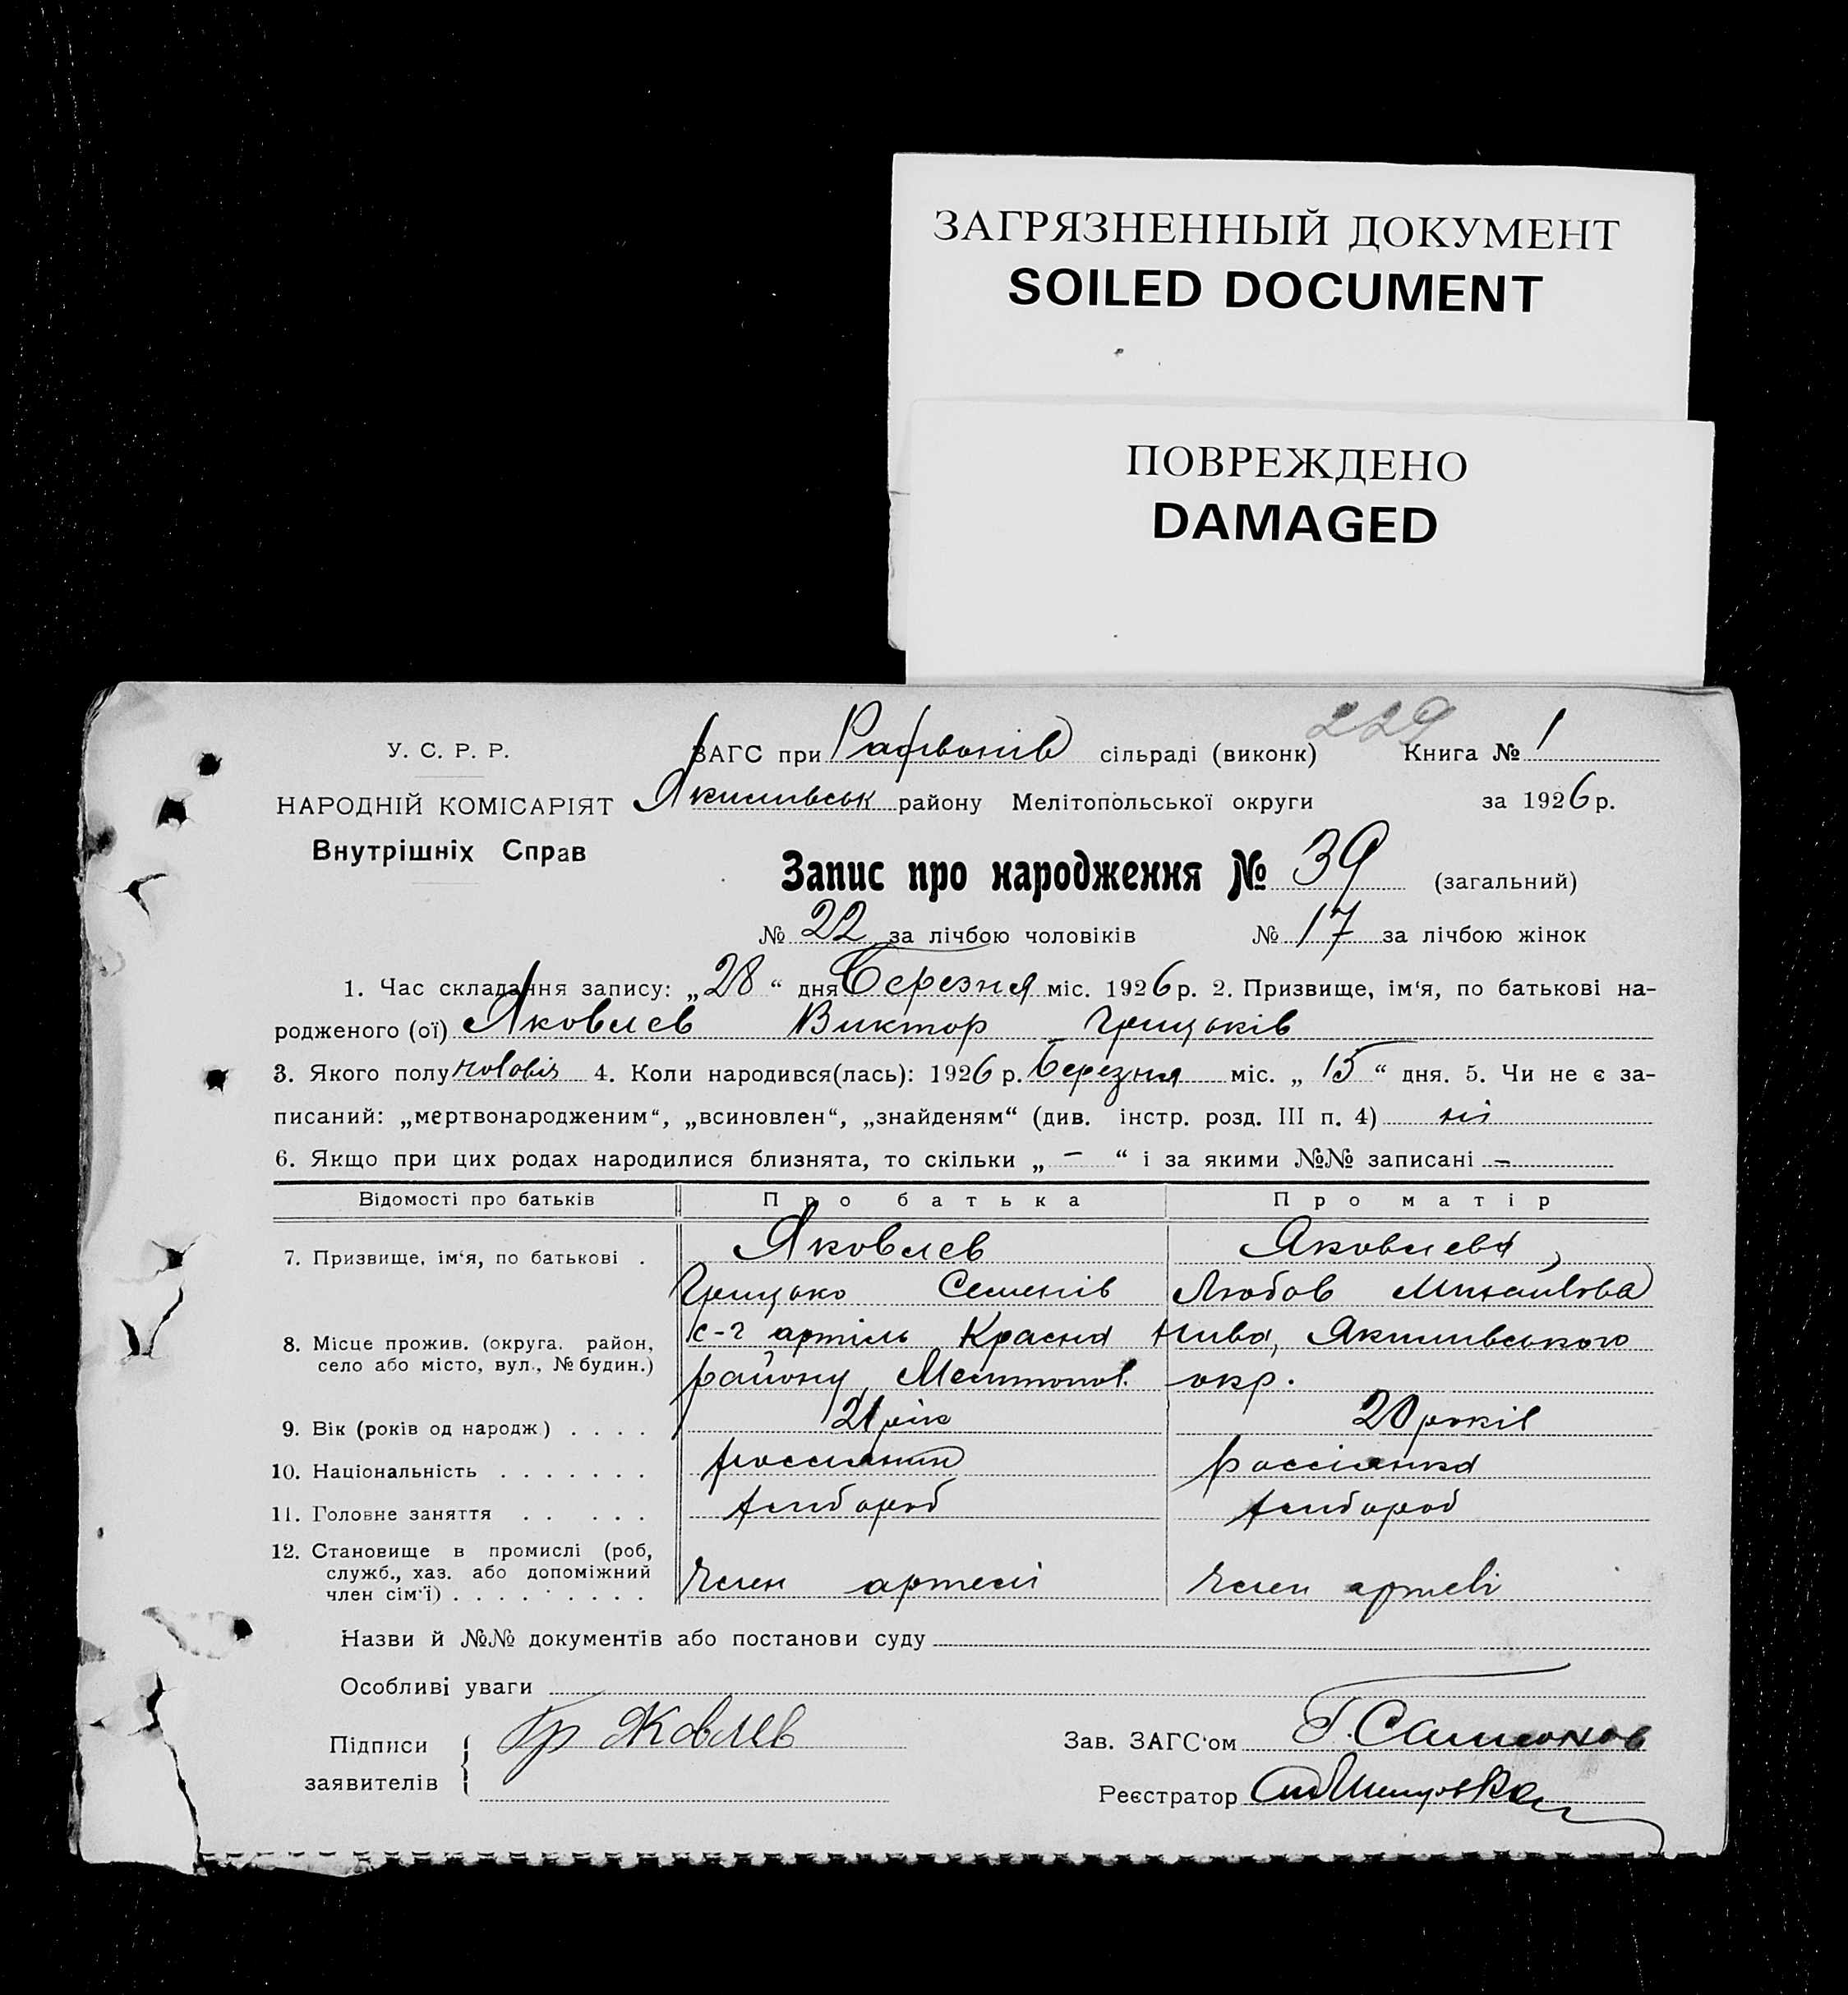 ЗАГРЯЗНЕННЫЙ ДОКУМЕНТ
SOILED DOCUMENT
ПОВРЕЖДЕНО
DAMAGED
229
У. С. Р. Р.
ЗАГС при сільраді (виконк) Книга № 1
НАРОДНІЙ КОМІСАРІЯТ
Якимивськ району Мелітопольської округи за 1926 р.
Внутрішніх Справ
Запис про народження № 39 (загальний)
№ 22 за лічбою чоловіків № 17 за лічбою жінок
1. Час складання запису: „28“ дня Березня міс. 1926 р. 2. Призвище, ім‘я, по батькові на-
родженого (ої) Яковлев Виктор Грицьків
3. Якого полу чоловіч 4. Коли народився(лась): 1926 р. березня міс. „15“ дня. 5. Чи не є за-
писаний: „мертвонародженим“, „всиновлен“, „знайденям“ (див. інстр. розд. III п. 4) ні
6. Якщо при цих родах народилися близнята, то скільки „ – “ і за якими №№ записані –
Відомості про батьків Про батька Про матір
7. Призвище, ім‘я, по батькові . Яковлев Яковлева,
Грицько Семенів Любов Михайлова
8. Місце прожив. (округа. район, село або місто, вул., № будин.) с-г артіль Красна Нива, Якимивського
району, Мелитопол. окр.
9. Вік (років од народж) . . . . 21 рік 20 років
10. Національність . . . . . . . россианин россіянка
11. Головне заняття . . . . . хлибороб хлибороб
12. Становище в промислі (роб,
служб., хаз. або допоміжний
член сім‘ї) . . . . . . . . . Член артелі Член артелі
Назви й №№ документів або постанови суду
Особливі уваги
Підписи
заявителів
Гр Яковлев
Зав. ЗАГС‘ом Г. Самсонов
Реєстратор